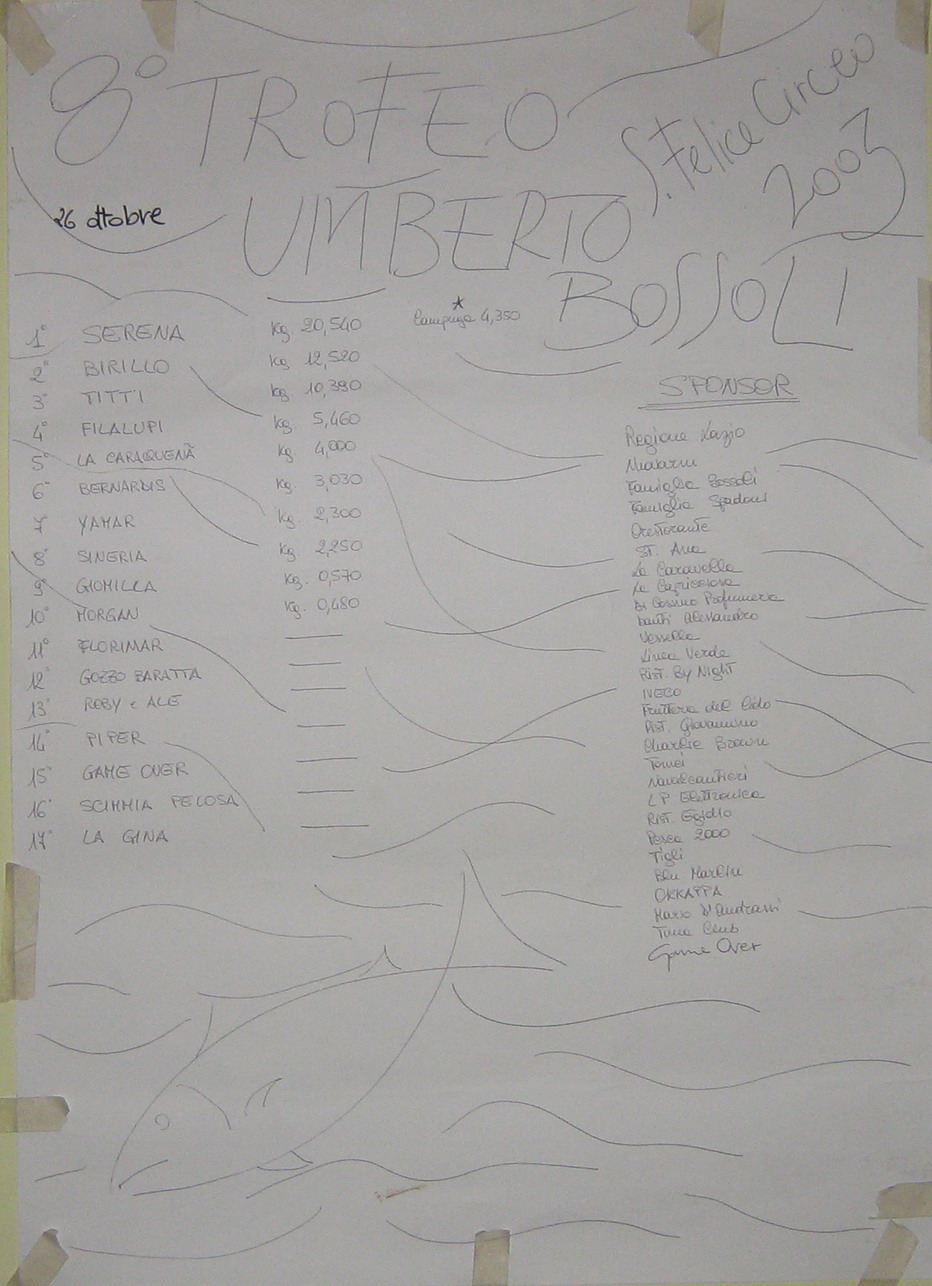 8° TROFEO
S. Felice Circeo
2003
26 ottobre
UMBERTO
BOSSOLI
1° SERENA Kg. 20,540 * Lampuga 4,350
2° BIRILLO Kg 12,520
3° TITTI Kg 10,390
4° FILALUPI Kg. 5,460
5° LA CARAQUENÃ Kg 4,000
6° BERNARDIS Kg. 3,030
7° YAMAR Kg. 2,300
8° SINERIA Kg 2,250
9° GIOMILLA Kg. 0,570
10° MORGAN Kg. 0,480
11° FLORIMAR —
12° GOZZO BARATTA —
13° ROBY e ALE —
14° PIPER —
15° GAME OVER —
16° SCIMMIA PELOSA —
17° LA GINA —
SPONSOR
Regione Lazio
Famiglia Bossoli
Famiglia Spadoni
ST. Ana
La Caravella
La Capricciosa
Di Cosimo Profumeria
Santi Alessandro
Vessella
Linea Verde
Rist. By Night
IVECO
Frutteria del Lido
Rist. Giovannino
Charlie Brown
Tomei
Navalcantieri
L P Elettronica
Rist. Egidio
Pesca 2000
Tigli
Blu Marlin
OKKAPPA
Mario D'Andrassi
Tuna Club
Game Over